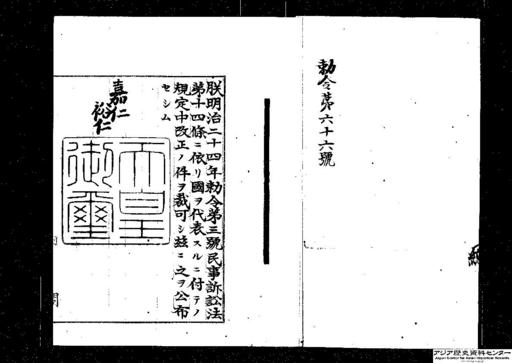 勅令第六十六號
朕明治二十四年勅令第三號民事訴訟法
第十四條ニ依リ國ヲ代表スルニ付テノ
規定中改正ノ件ヲ裁可シ玆ニ之ヲ公布
セシム
嘉仁
裕仁
天皇
御璽
アジア歴史資料センター
Japan Center for Asian Historical Records